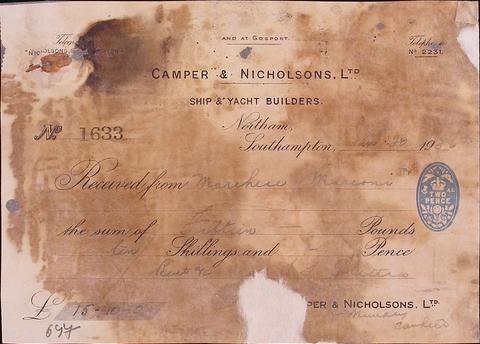 AND AT GOSPORT.
Telephone
Nº 2231.
CAMPER & NICHOLSONS, LTD
SHIP & YACHT BUILDERS.
Nº 1633
Northam,
Southampton, 28 19
Received from Marchese Marconi
TWO
PENCE
the sum of Fifteen Pounds
ten Shillings and — Pence
£ 15-10-0
PER & NICHOLSONS, LTD.
697